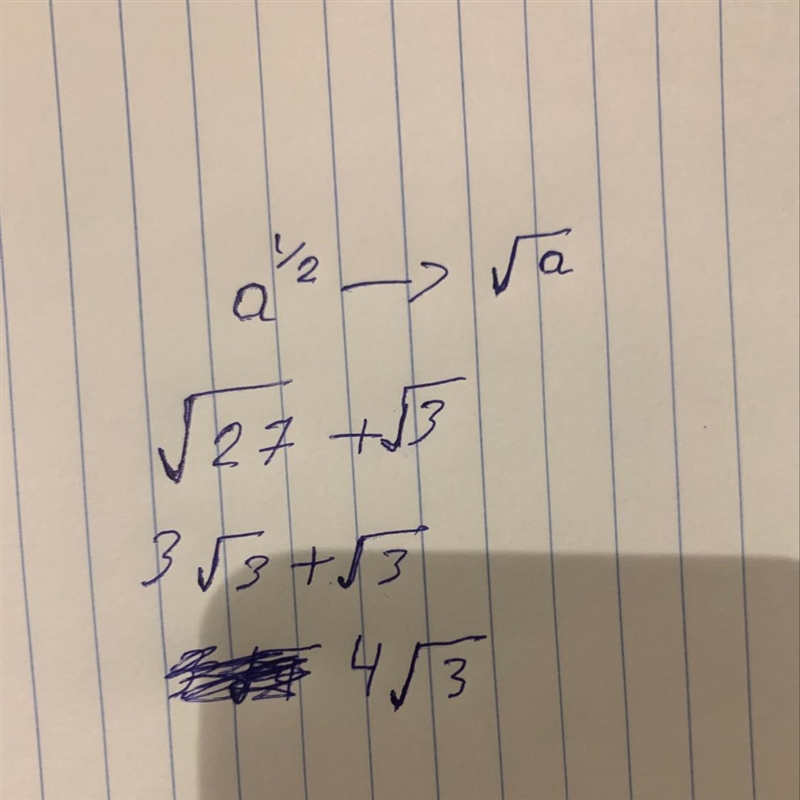 a^1/2 → √a
√27 + √3
3√3 + √3
4√3